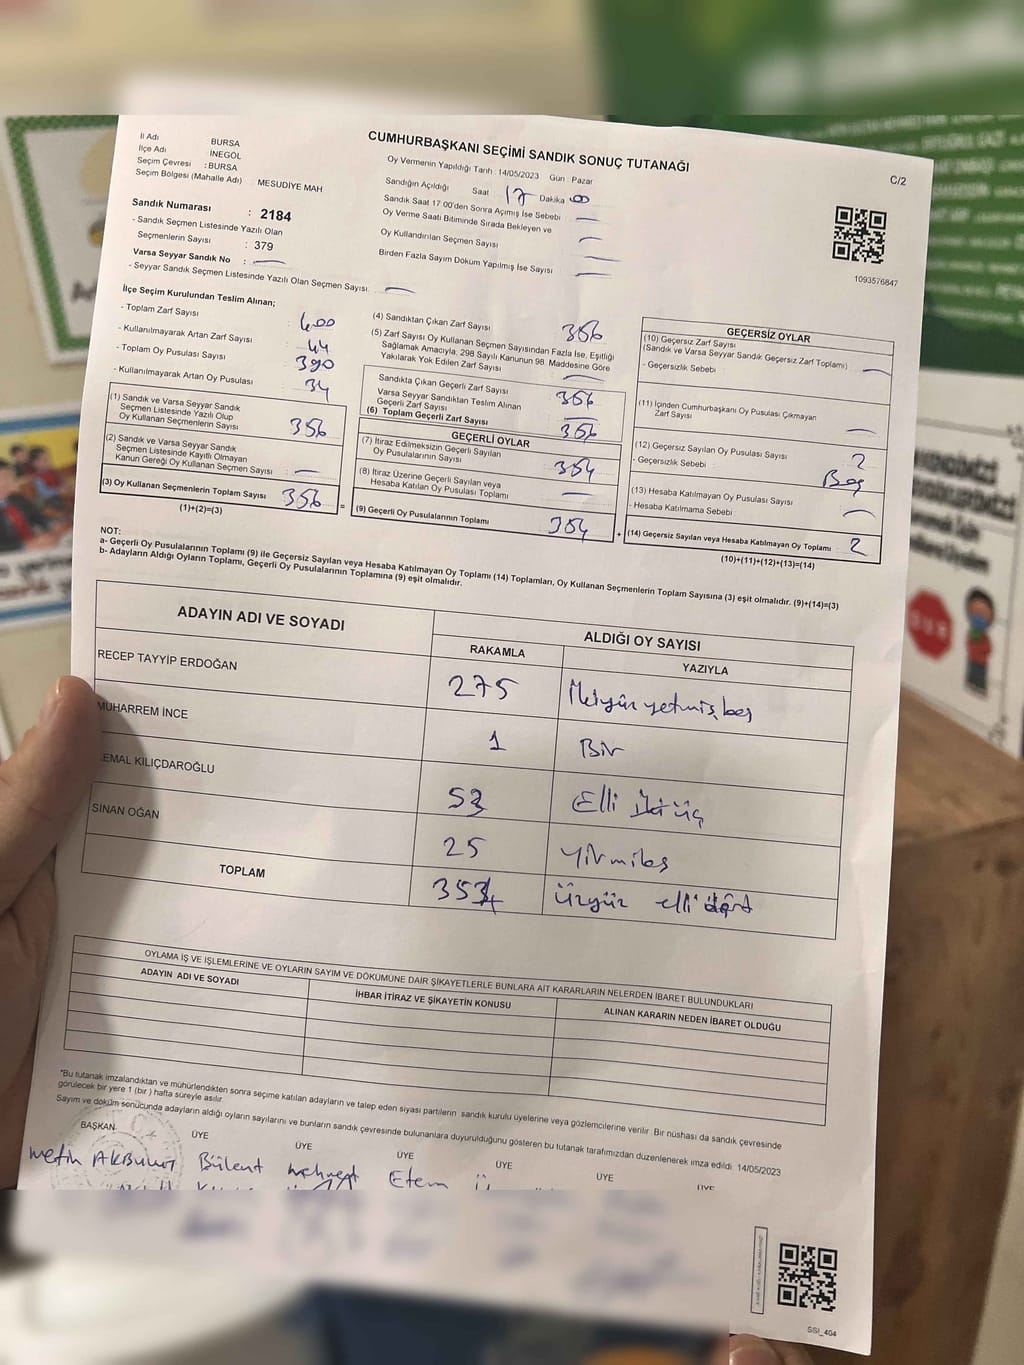 CUMHURBAŞKANI SEÇİMİ SANDIK SONUÇ TUTANAĞI
C/2
İl Adı BURSA
İlçe Adı İNEGÖL
Seçim Çevresi : BURSA
Seçim Bölgesi (Mahalle Adı) : MESUDİYE MAH
Sandık Numarası : 2184
- Sandık Seçmen Listesinde Yazılı Olan
Seçmenlerin Sayısı : 379
Varsa Seyyar Sandık No : —
- Seyyar Sandık Seçmen Listesinde Yazılı Olan Seçmen Sayısı: —
Oy Vermenin Yapıldığı Tarih : 14/05/2023 Gün : Pazar
Sandığın Açıldığı Saat 17 Dakika 00
Sandık Saat 17.00'den Sonra Açımış İse Sebebi : —
Oy Verme Saati Bitiminde Sırada Bekleyen ve
Oy Kullandırılan Seçmen Sayısı —
Birden Fazla Sayım Döküm Yapılmış İse Sayısı —
1093576847
İlçe Seçim Kurulundan Teslim Alınan;
- Toplam Zarf Sayısı : 400
- Kullanılmayarak Artan Zarf Sayısı : 44
- Toplam Oy Pusulası Sayısı : 390
- Kullanılmayarak Artan Oy Pusulası : 34
(1) Sandık ve Varsa Seyyar Sandık
Seçmen Listesinde Yazılı Olup
Oy Kullanan Seçmenlerin Sayısı : 356
(2) Sandık ve Varsa Seyyar Sandık
Seçmen Listesinde Kayıtlı Olmayan
Kanun Gereği Oy Kullanan Seçmen Sayısı : —
(3) Oy Kullanan Seçmenlerin Toplam Sayısı : 356
(1)+(2)=(3)
=
(4) Sandıktan Çıkan Zarf Sayısı 356
(5) Zarf Sayısı Oy Kullanan Seçmen Sayısından Fazla İse, Eşitliği
Sağlamak Amacıyla, 298 Sayılı Kanunun 98. Maddesine Göre
Yakılarak Yok Edilen Zarf Sayısı —
Sandıkta Çıkan Geçerli Zarf Sayısı : 356
Varsa Seyyar Sandıktan Teslim Alınan
Geçerli Zarf Sayısı : —
(6) Toplam Geçerli Zarf Sayısı : 356
GEÇERLİ OYLAR
(7) İtiraz Edilmeksizin Geçerli Sayılan
Oy Pusulalarının Sayısı : 354
(8) İtiraz Üzerine Geçerli Sayılan veya
Hesaba Katılan Oy Pusulası Toplamı : —
(9) Geçerli Oy Pusulalarının Toplamı 354
+
GEÇERSİZ OYLAR
(10) Geçersiz Zarf Sayısı
(Sandık ve Varsa Seyyar Sandık Geçersiz Zarf Toplamı) : —
- Geçersizlik Sebebi :
(11) İçinden Cumhurbaşkanı Oy Pusulası Çıkmayan
Zarf Sayısı : —
(12) Geçersiz Sayılan Oy Pusulası Sayısı : 2
- Geçersizlik Sebebi : Boş
(13) Hesaba Katılmayan Oy Pusulası Sayısı : —
- Hesaba Katılmama Sebebi :
(14) Geçersiz Sayılan veya Hesaba Katılmayan Oy Toplamı : 2
(10)+(11)+(12)+(13)=(14)
NOT:
a- Geçerli Oy Pusulalarının Toplamı (9) ile Geçersiz Sayılan veya Hesaba Katılmayan Oy Toplamı (14) Toplamları, Oy Kullanan Seçmenlerin Toplam Sayısına (3) eşit olmalıdır. (9)+(14)=(3)
b- Adayların Aldığı Oyların Toplamı, Geçerli Oy Pusulalarının Toplamına (9) eşit olmalıdır.
ADAYIN ADI VE SOYADI
ALDIĞI OY SAYISI
RAKAMLA YAZIYLA
RECEP TAYYİP ERDOĞAN 275 İkiyüz yetmiş beş
MUHARREM İNCE 1 Bir
EMAL KILIÇDAROĞLU 53 Elli üç
SİNAN OĞAN 25 Yirmibeş
TOPLAM 354 Üzyüz elli dört
OYLAMA İŞ VE İŞLEMLERİNE VE OYLARIN SAYIM VE DÖKÜMÜNE DAİR ŞİKAYETLERLE BUNLARA AİT KARARLARIN NELERDEN İBARET BULUNDUKLARI
ADAYIN ADI VE SOYADI İHBAR İTİRAZ VE ŞİKAYETİN KONUSU ALINAN KARARIN NEDEN İBARET OLDUĞU
*Bu tutanak imzalandıktan ve mühürlendikten sonra seçime katılan adayların ve talep eden siyasi partilerin sandık kurulu üyelerine veya gözlemcilerine verilir. Bir nüshası da sandık çevresinde
görülecek bir yere 1 (bir ) hafta süreyle asılır.
Sayım ve döküm sonucunda adayların aldığı oyların sayılarını ve bunların sandık çevresinde bulunanlara duyurulduğunu gösteren bu tutanak tarafımızdan düzenlenerek imza edildi. 14/05/2023
BAŞKAN ÜYE ÜYE ÜYE ÜYE ÜYE ÜYE
Metin AKBULUT Bülent Mehmet Etem
SSI_404
DUR